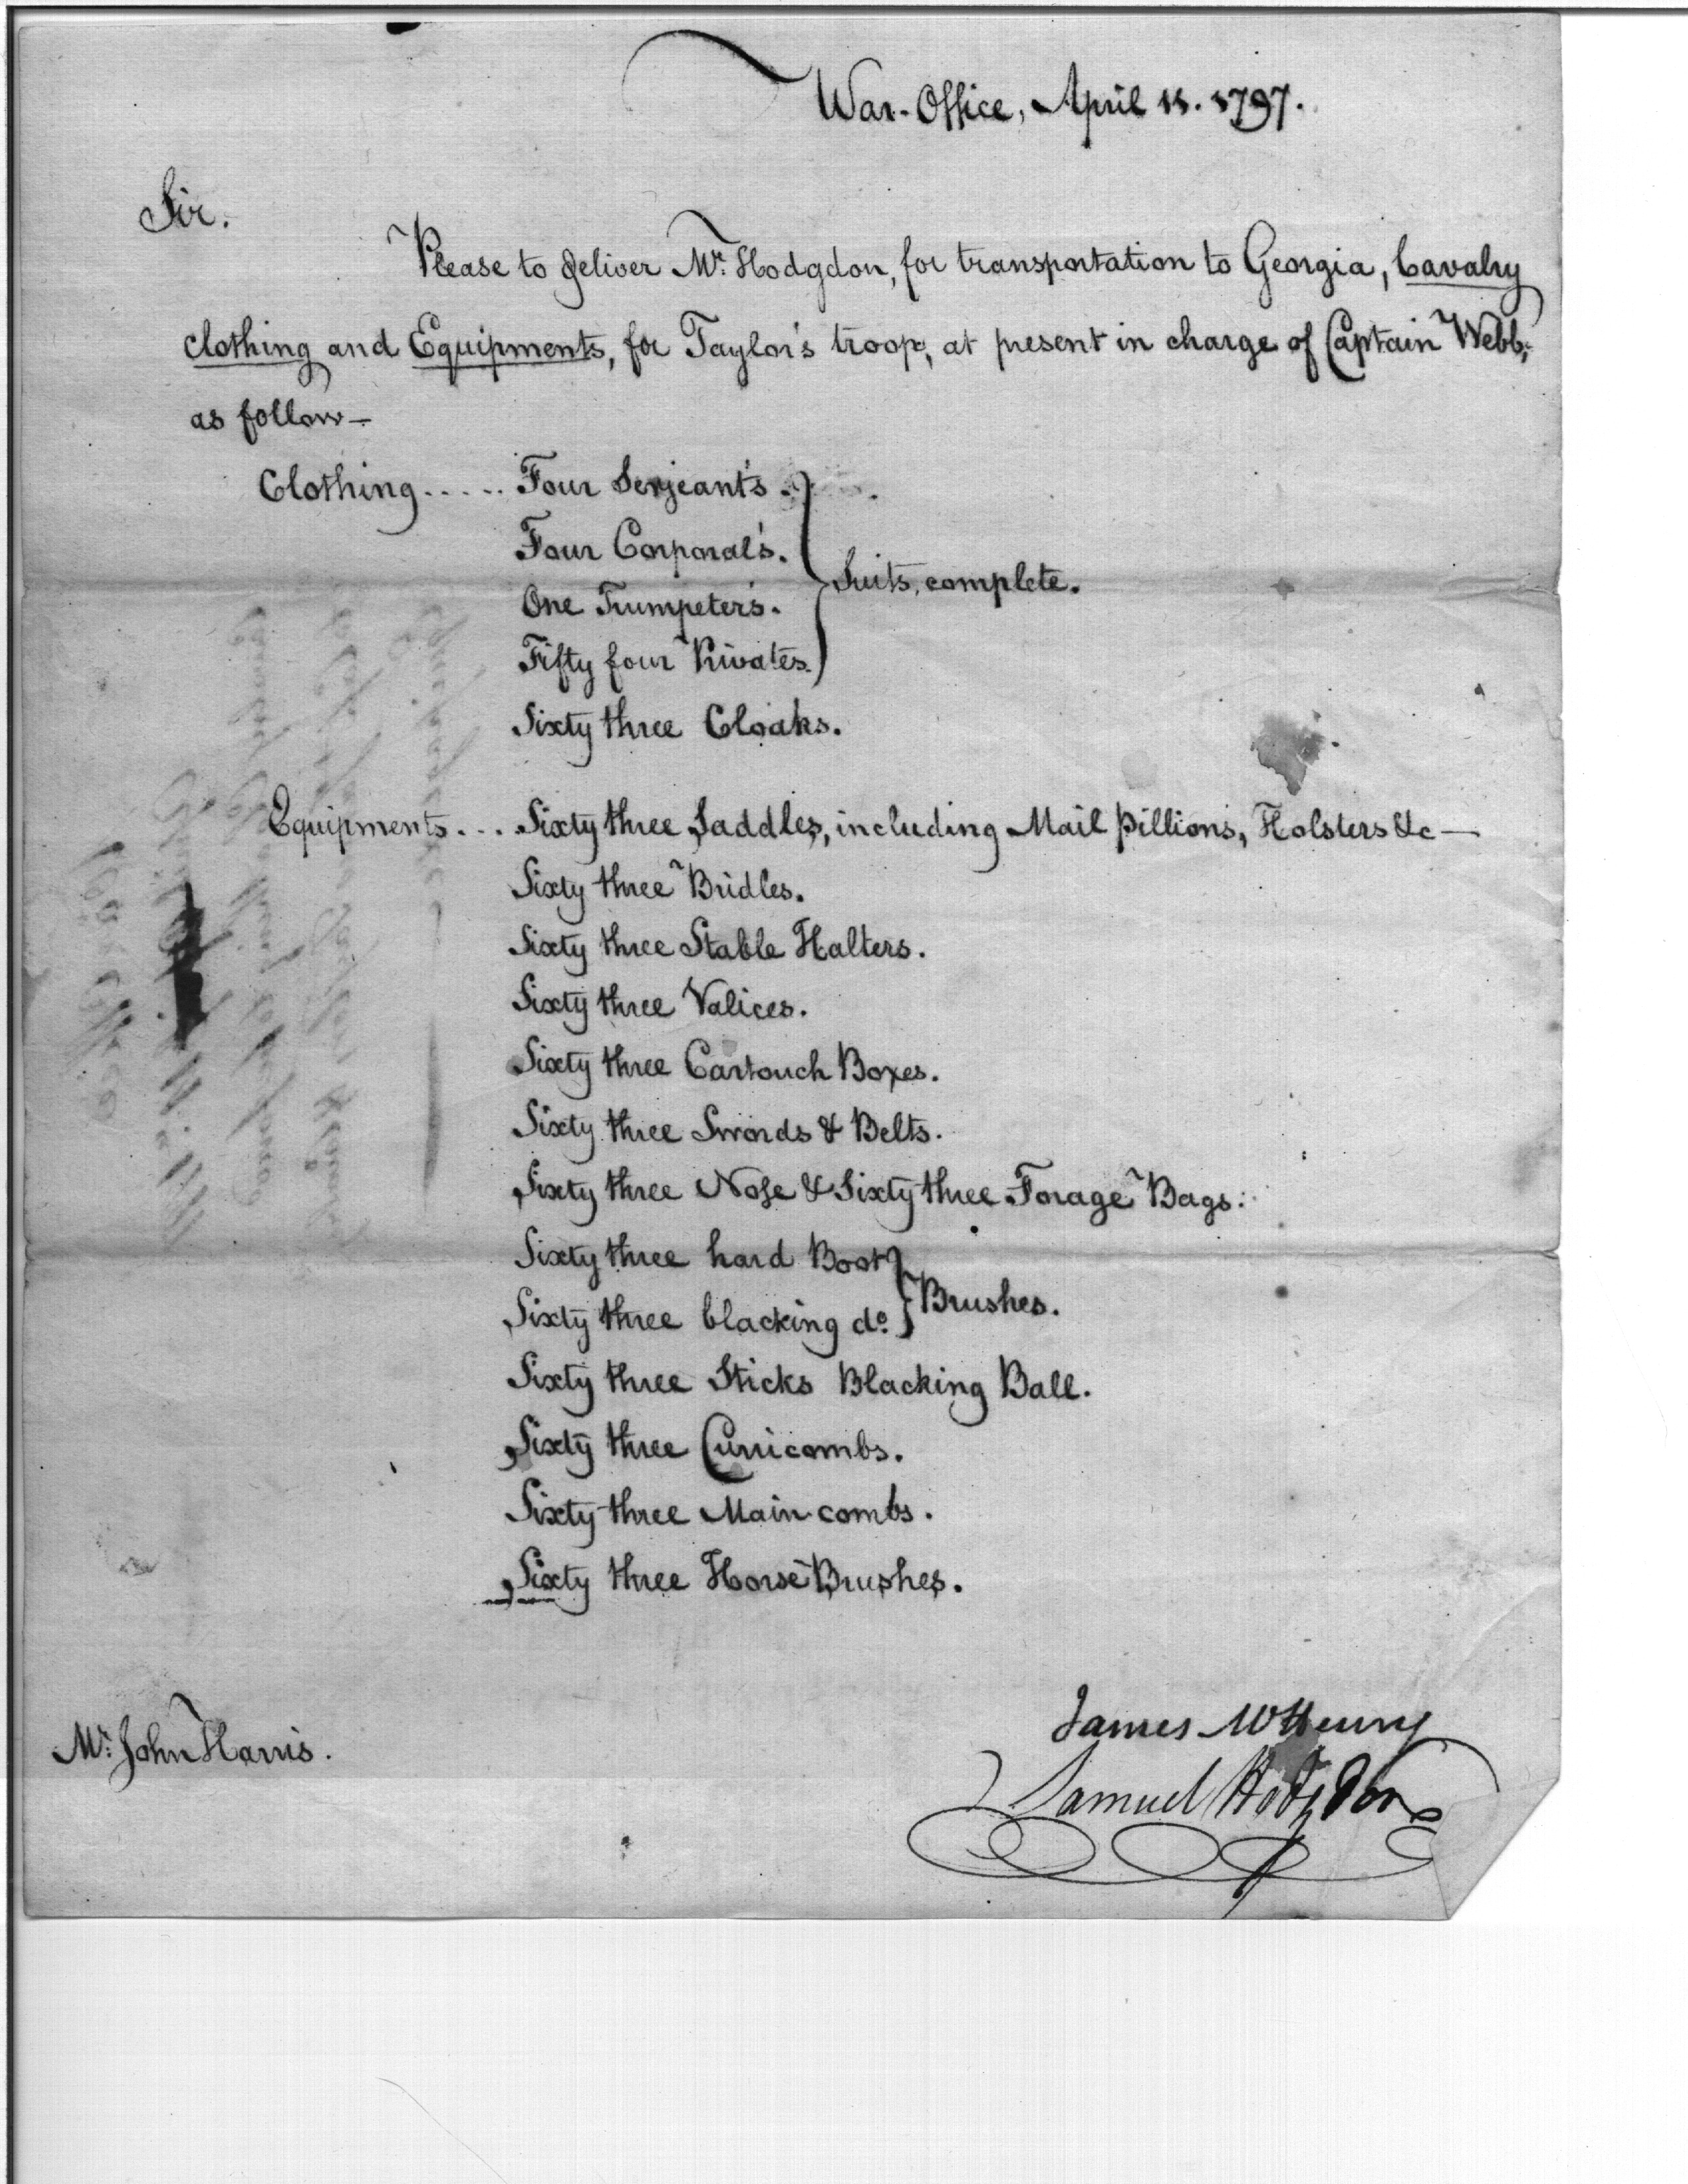 War-Office, April 18. 1797.
Sir.
Please to deliver Mr. Hodgdon, for transportation to Georgia, Cavalry
clothing and Equipments, for Taylor's troop, at present in charge of Captain Webb,
as follow—
Clothing..... Four Serjeant's.
Four Corporal's.
Suits, complete.
One Trumpeter's.
Fifty four Privates.
Sixty three Cloaks.
Equipments... Sixty three Saddles, including Mail pillions, Holsters &c—
Sixty three Bridles.
Sixty three Stable Halters.
Sixty three Valices.
Sixty three Cartouch Boxes.
Sixty three Swords & Belts.
Sixty three Nose & Sixty three Forage Bags.
Sixty three hard Boot
Brushes.
Sixty three blacking do.
Sixty three Sticks Blacking Ball.
Sixty three Curricombs.
Sixty three Main combs.
Sixty three Horse Brushes.
James McHenry
Mr. John Harris.
Samuel Hodgdon